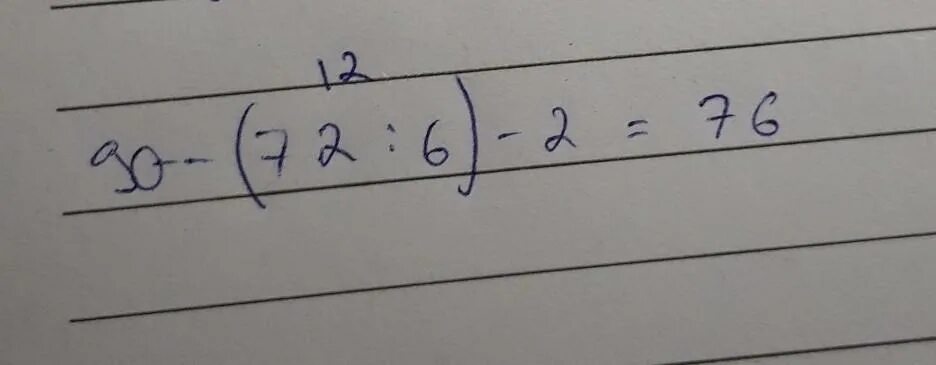 12
90-(72:6)-2=76